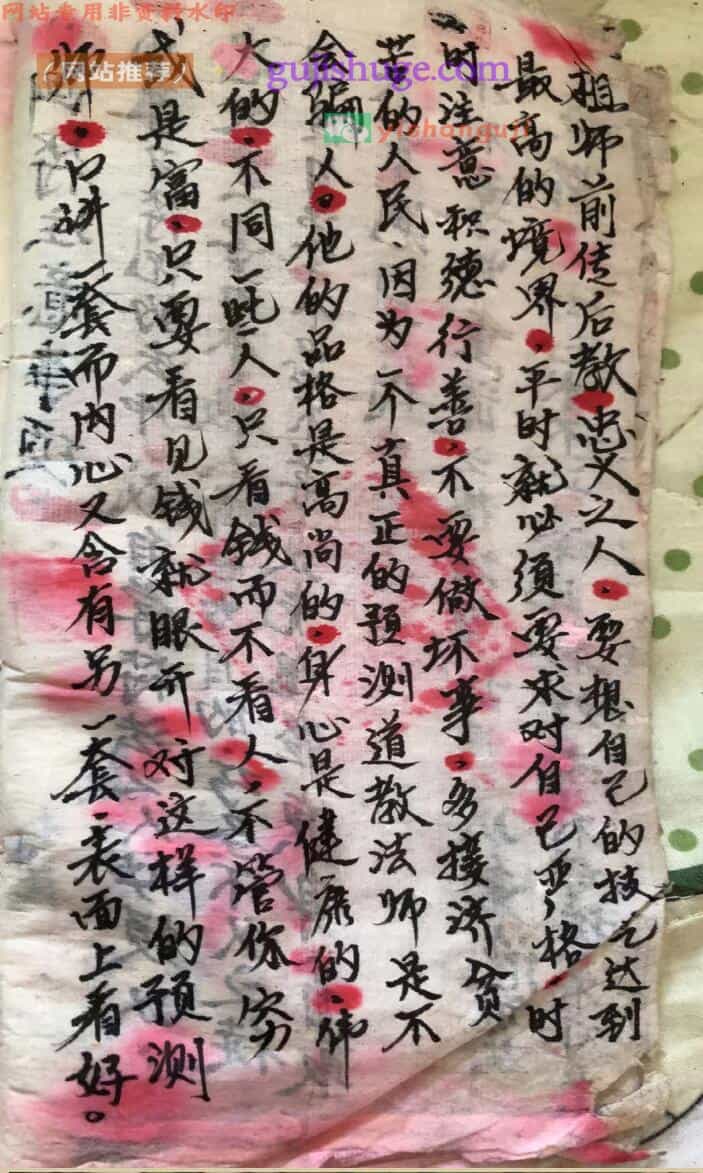 网站专用非资料水印
《网站推荐》
gujishuge.com
yishanguji
祖师前传后教忠义之人。要想自己的技艺达到
最高的境界。平时就必须要求对自己严格。时
时注意积德行善。不要做坏事。多接济贫
苦的人民、因为一个真正的预测道教法师是不
会骗人。他的品格是高尚的。身心是健康的。伟
大的。不同一些人。只看钱而不看人，不管你穷
或是富。只要看见钱就眼开对这样的预测
师。口讲一套而内心又含有另一套、表面上看好。